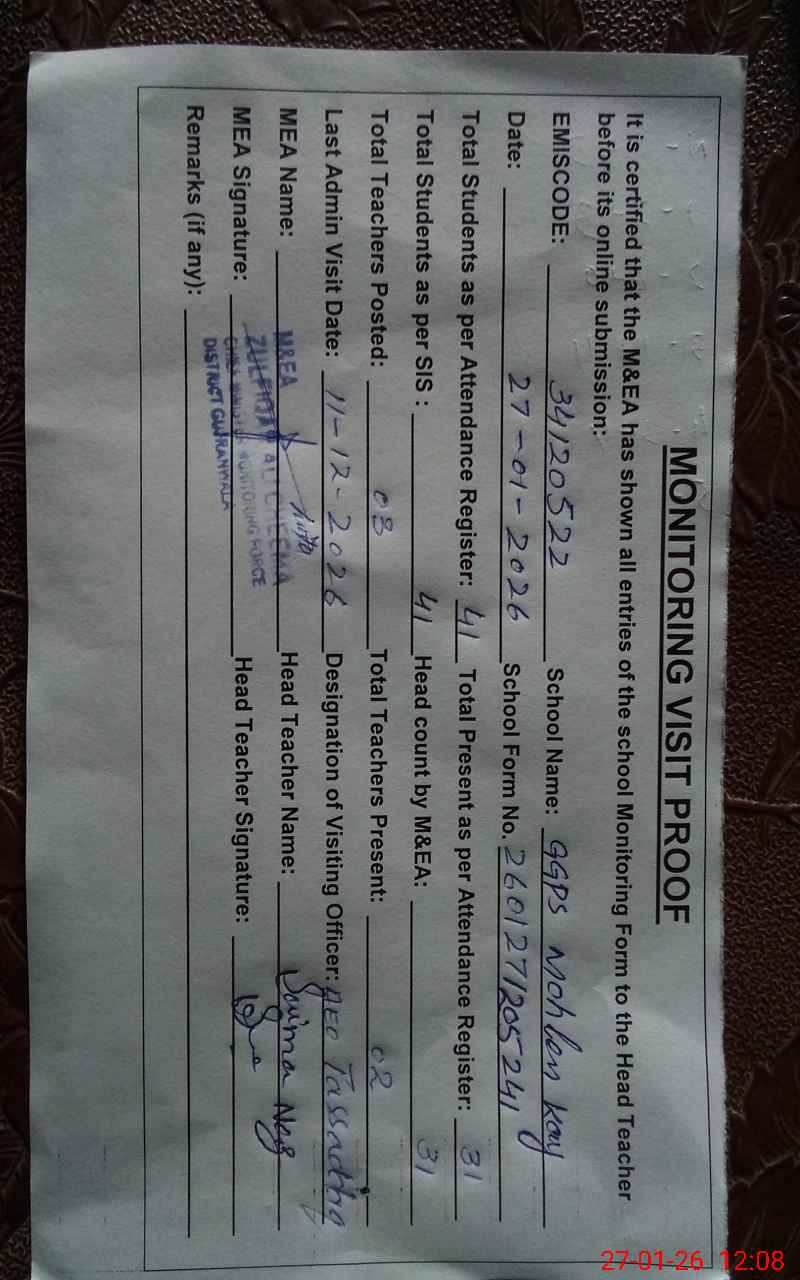 MONITORING VISIT PROOF
It is certified that the M&EA has shown all entries of the school Monitoring Form to the Head Teacher
before its online submission:
EMISCODE: 34120522 School Name: GGPS Mohlen Kay
Date: 27-01-2026 School Form No. 260127120524 1
Total Students as per Attendance Register: 41 Total Present as per Attendance Register: 31
Total Students as per SIS : 41 Head count by M&EA: 31
Total Teachers Posted: 03 Total Teachers Present: 02
Last Admin Visit Date: 11-12-2026 Designation of Visiting Officer: AEO Tassadaq
MEA Name: M&EA Head Teacher Name: Saima Naz
ZULFIQAR ALI CHEEMA
MEA Signature: Head Teacher Signature:
CHIEF MINISTER MONITORING FORCE
DISTRICT GUJRANWALA
Remarks (if any):
27-01-26 12:08